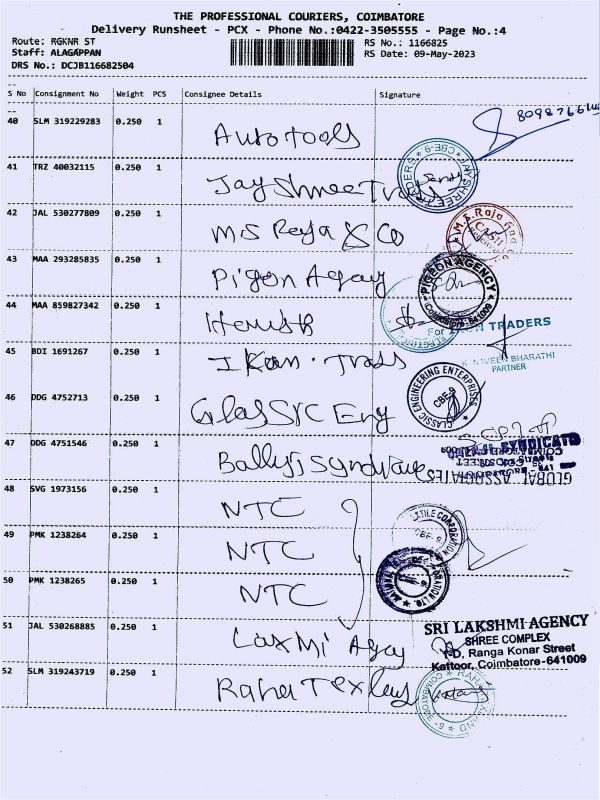 THE PROFESSIONAL COURIERS, COIMBATORE
Delivery Runsheet - PCX - Phone No.:0422-3505555 - Page No.:4
Route: RGKNR ST
RS No.: 1166825
Staff: ALAGAPPAN
RS Date: 09-May-2023
DRS No.: DCJB116682504
S No Consignment No Weight PCS Consignee Details Signature
40 SLM 319229283 0.250 1 Autotools
41 TRZ 40032115 0.250 1 Jay Shree
42 JAL 530277809 0.250 1 M.S Raja & Co
43 MAA 293285835 0.250 1 Pigon Agency
PIGEON AGENCY
44 MAA 859827342 0.250 1
TRADERS
45 BDI 1691267 0.250 1 Ikon
NAVEEN BHARATHI
PARTNER
46 DDG 4752713 0.250 1 Classic Eng
CLASSIC ENGINEERING ENTERPRISES
CBE-9
47 DDG 4751546 0.250 1
GLOBAL ASSOCIATES
48 SVG 1973156 0.250 1 NTC
49 PMK 1238264 0.250 1 NTC
50 PMK 1238265 0.250 1 NTC
51 JAL 530268885 0.250 1 Laxmi Agcy
SRI LAKSHMI AGENCY
SHREE COMPLEX
Ranga Konar Street
Kattoor, Coimbatore-641009
52 SLM 319243719 0.250 1